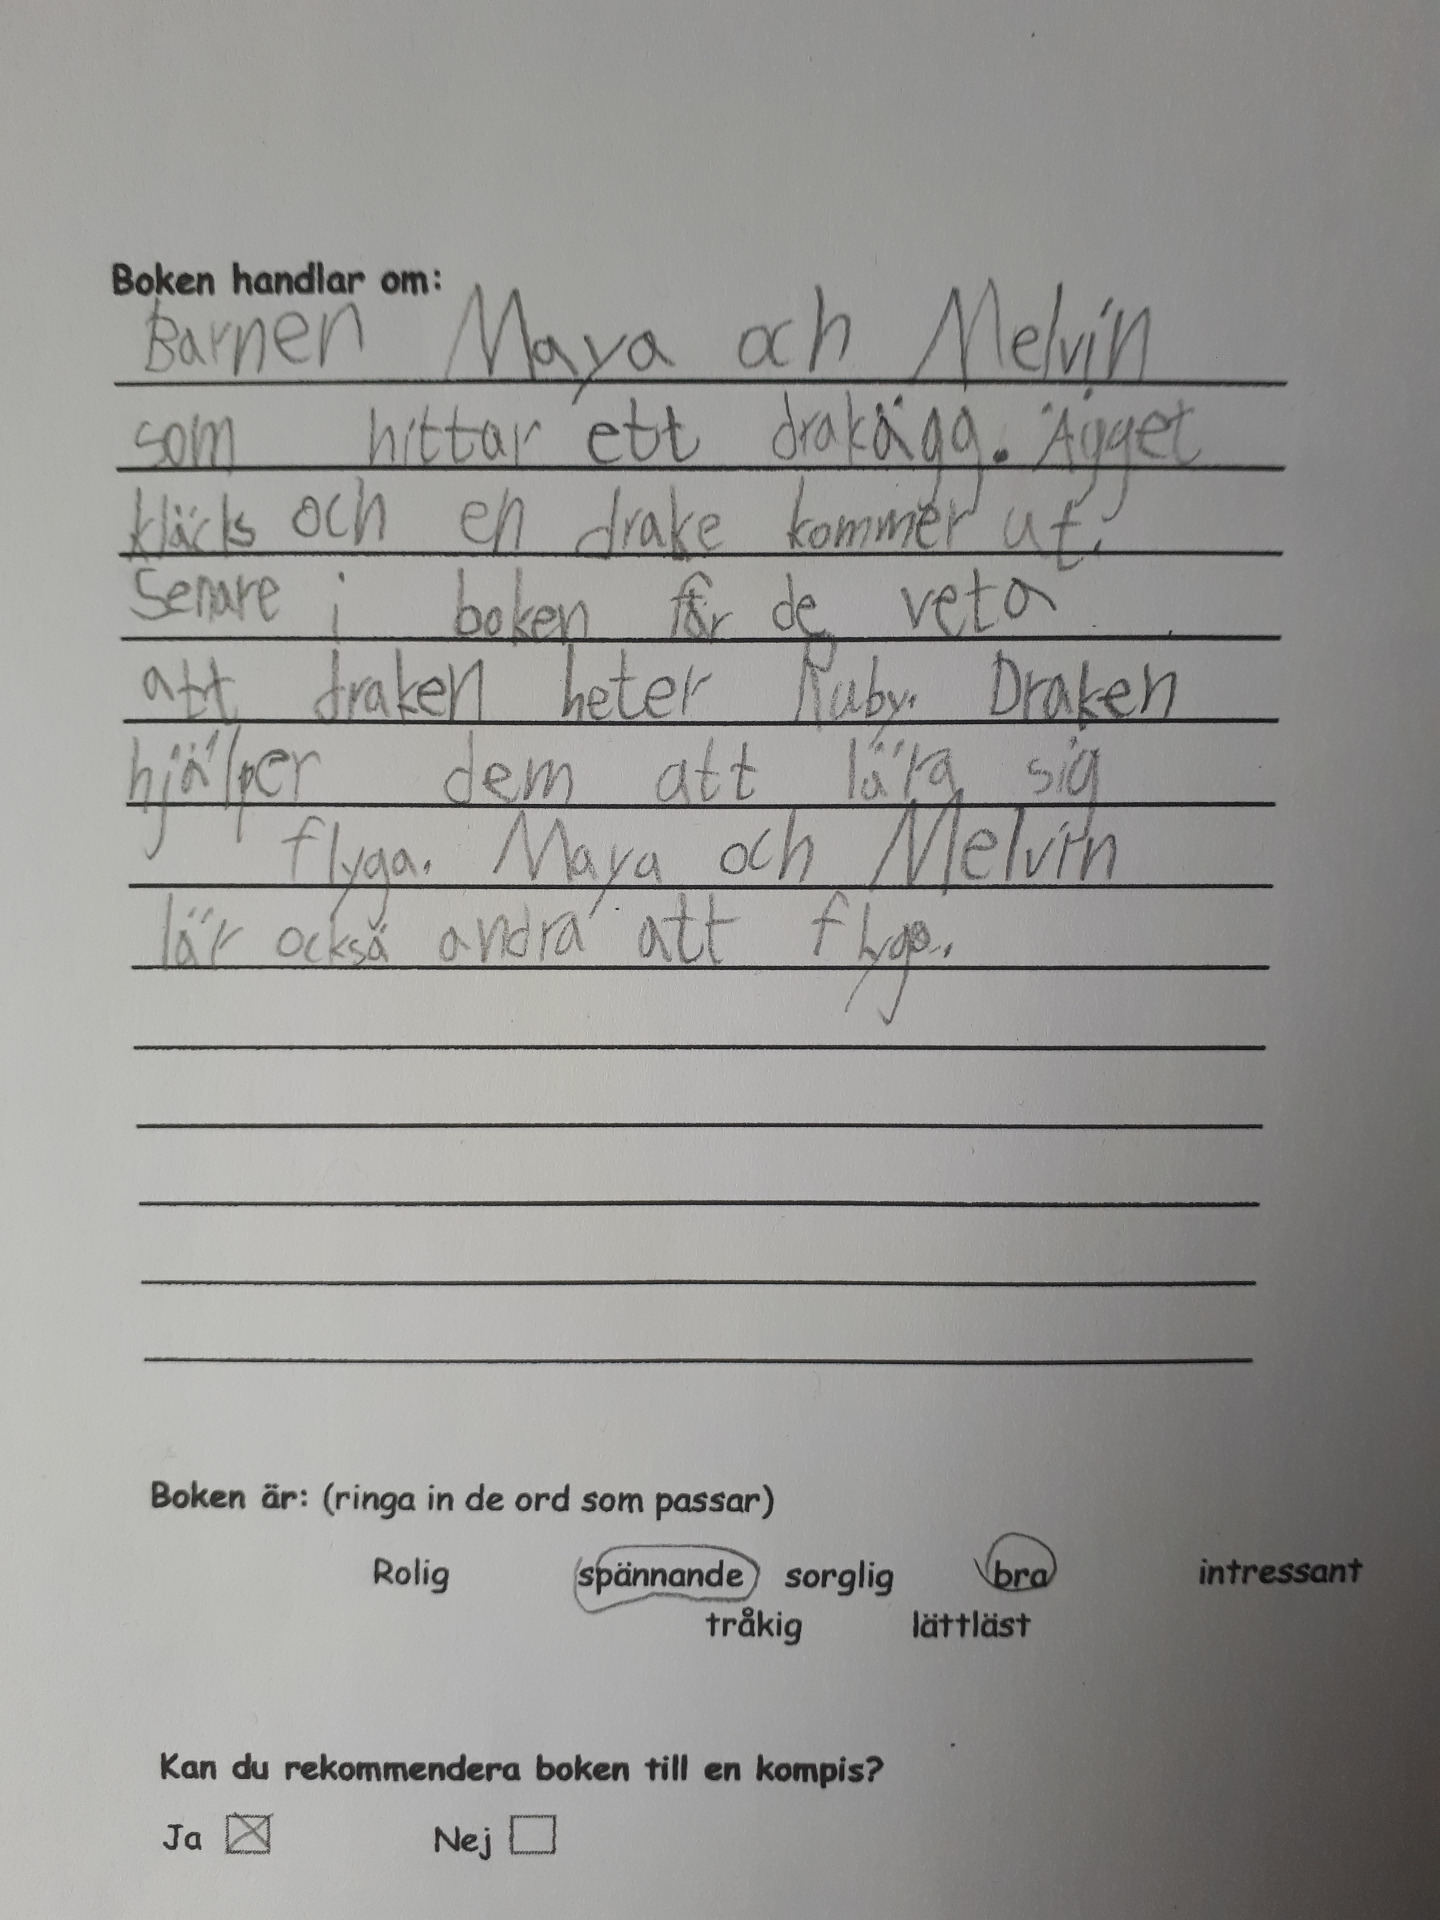 Boken handlar om:
Barnen Maya och Melvin
som hittar ett drakägg. Ägget
kläcks och en drake kommer ut.
Senare i boken får de veta
att draken heter Ruby. Draken
hjälper dem att lära sig
flyga. Maya och Melvin
lär också andra att flyga.
Boken är: (ringa in de ord som passar)
Rolig spännande sorglig bra intressant
tråkig lättläst
Kan du rekommendera boken till en kompis?
Ja Nej